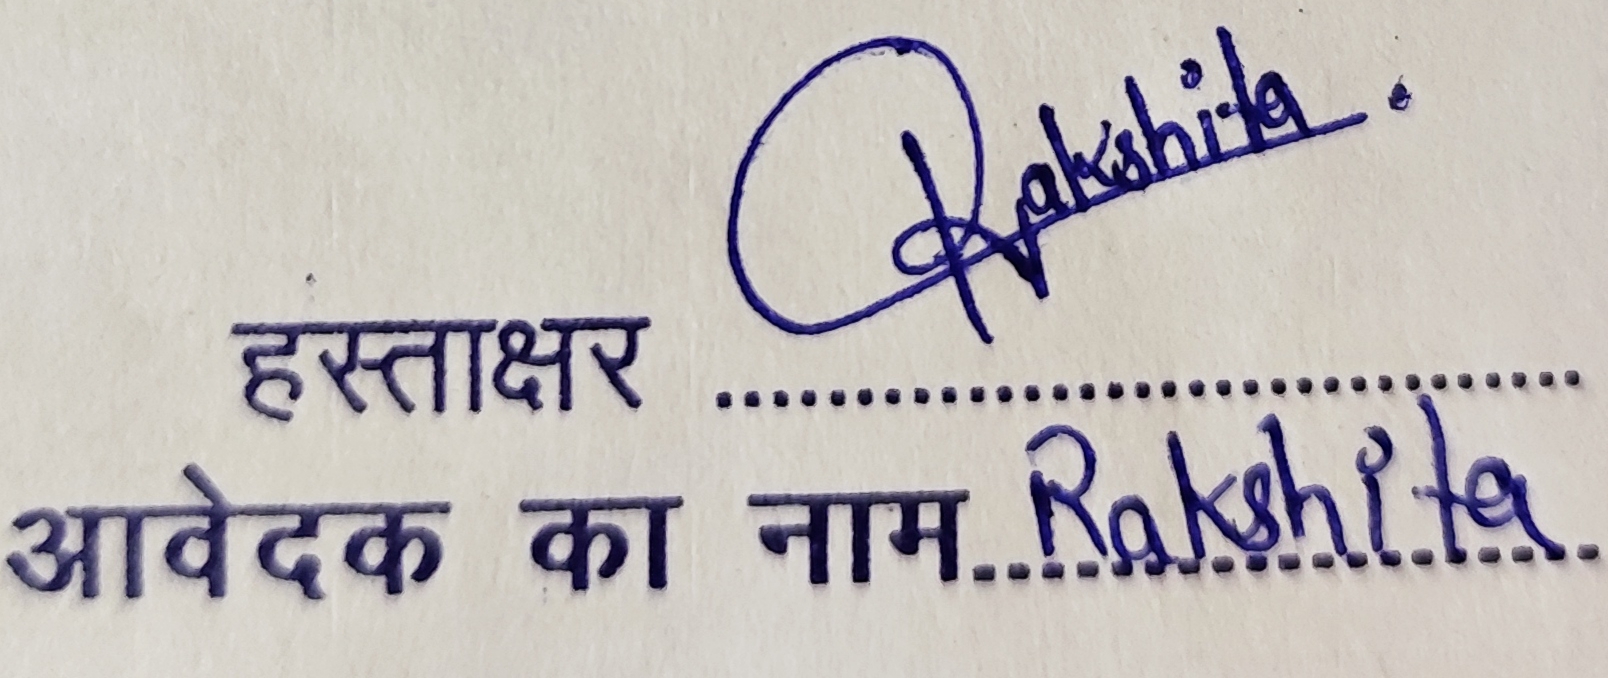 Rakshita.
हस्ताक्षर ................................
आवेदक का नाम..Rakshita..